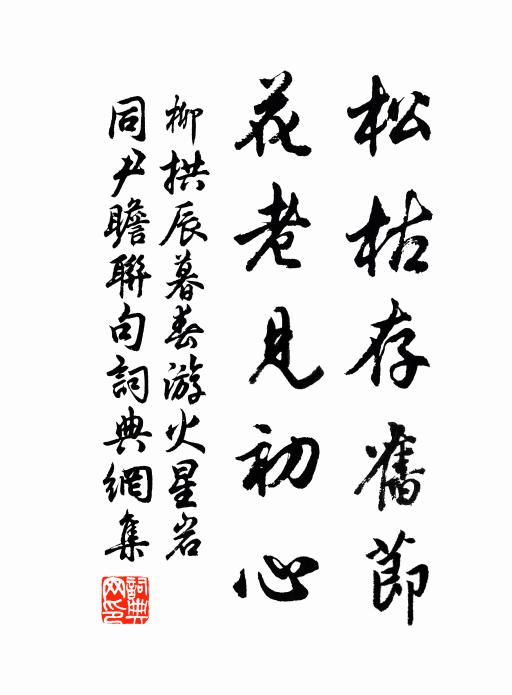 松枯存舊節
花老見初心
柳拱辰暮春游火星岩
同尹瞻聯句詞典網集
詞典网印